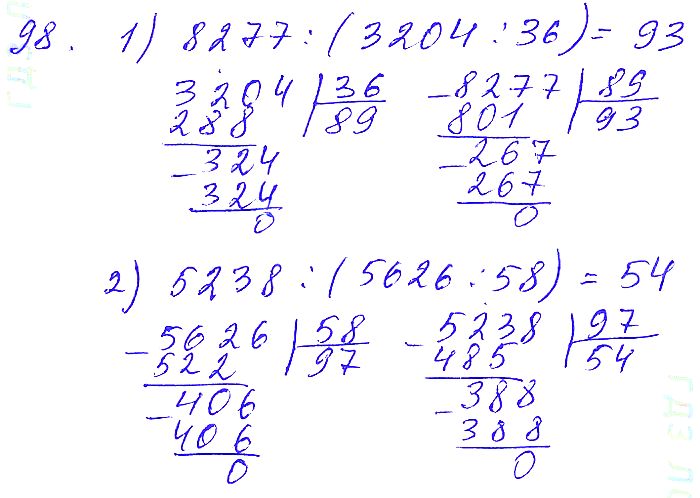 98. 1) 8277 : (3204 : 36) = 93
3204 | 36
288 | 89
-324
324
0
-8277 | 89
801 | 93
-267
267
0
2) 5238 : (5626 : 58) = 54
-5626 | 58
522 | 97
-406
406
0
-5238 | 97
485 | 54
-388
388
0